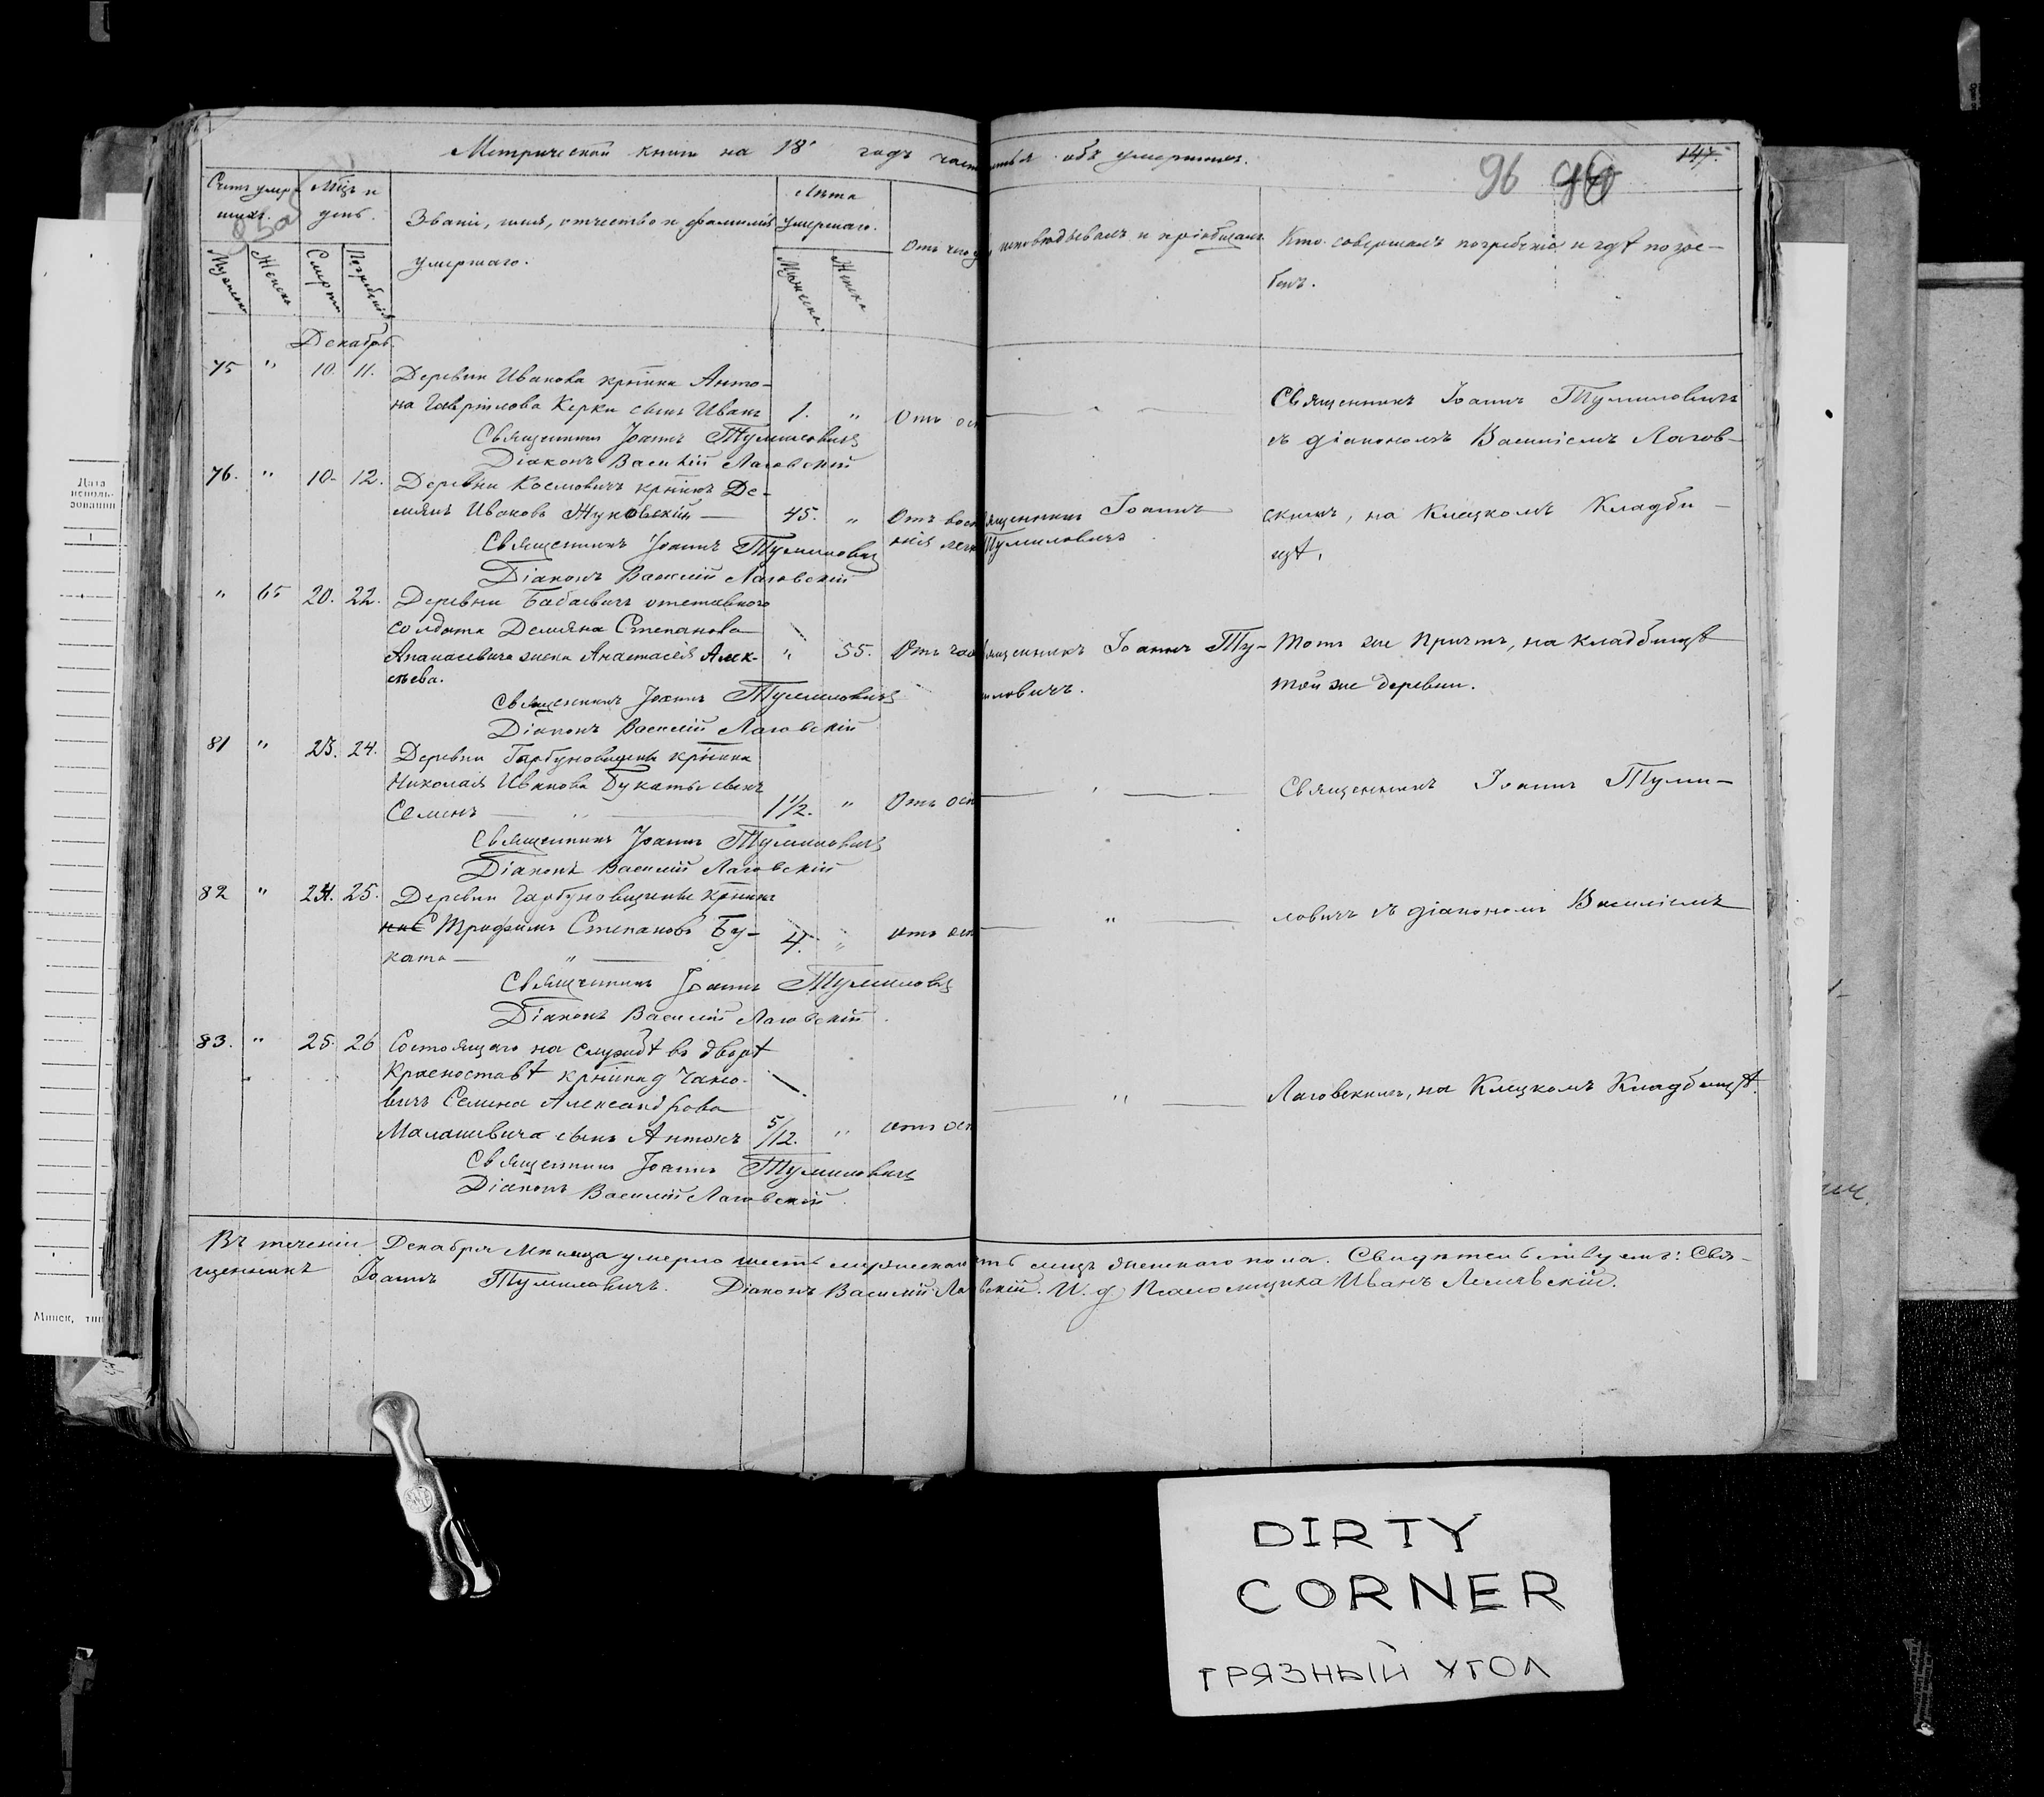 Метрической книги на 18 годъ часть третья объ умершихъ.
96
147.
Счетъ умер-
шихъ.
Мѣсяцъ и
день.
Званіе, имя, отчество и фамилія
умершаго.
Лѣта
умершаго.
Отъ чего
исповѣдывалъ и пріобщалъ
Кто совершалъ погребеніе и гдѣ погре-
бенъ.
Мужеска
Женска
Смерти
Погребенія
Мужеска.
Женска
Декабрь.
75 " 10. 11. Деревни Иванова крѣстна Анто-
на Гаврілова Керки сынъ Иванъ 1. " Отъ
Священникъ Іоаннъ Тумиловичъ
Діаконъ Василій Лаговскій
Священникъ Іоаннъ Тумиловичъ
съ діакономъ Василіемъ Лагов-
76. " 10. 12. Деревни Космовичъ крѣстнъ Де-
міянъ Ивановъ Жуковскій — 45. " Отъ
Священникъ Іоаннъ Тумиловичъ
Діаконъ Василій Лаговскій
ященникъ Іоаннъ
Тумиловичъ
скимъ, на Клецкомъ Кладби-
щѣ.
" 65 20. 22. Деревни Бабаевичъ отставного
солдата Деміяна Степанова
Апанасевича жена Анастасія Алек-
сѣева. " 55. Отъ
Священникъ Іоаннъ Тумиловичъ
Діаконъ Василій Лаговскій
ященникъ Іоаннъ Ту-
иловичъ.
Тотъ же Причтъ, на кладбищѣ
той же деревни.
81 " 23. 24. Деревни Гарбуновщины крѣстна
Николая Иванова Букаты сынъ
Семенъ 1 1/2. " Отъ
Священникъ Іоаннъ Тумиловичъ
Діаконъ Василій Лаговскій
Священникъ Іоаннъ Туми-
82 " 24. 25. Деревни Гарбуновщины крѣстнъ
Трофимъ Степановъ Бу-
ката 4. " отъ
Священникъ Іоаннъ Тумилов
Діаконъ Василій Лаговскій
ловичъ съ діакономъ Василіемъ
83. " 25. 26 Состоящаго на службѣ въ дворѣ
Красноставѣ крѣстна д
Семена Александрова
Малашевича сынъ Антонъ 5/12. " отъ
Священникъ Іоаннъ Тумиловичъ
Діаконъ Василій Лаговскій
Лаговскимъ, на Клецкомъ Кладбищѣ.
Въ теченіи Декабря Мѣсяца умерло шесть лицъ женскаго пола. Свидѣтельствуемъ: Свя-
щенникъ Іоаннъ Тумиловичъ. Діаконъ Василій Лаговскій. И. д. Псаломщика Иванъ
Дата
исполь-
зования
Минск, тип
DIRTY
CORNER
ГРЯЗНЫЙ УГОЛ